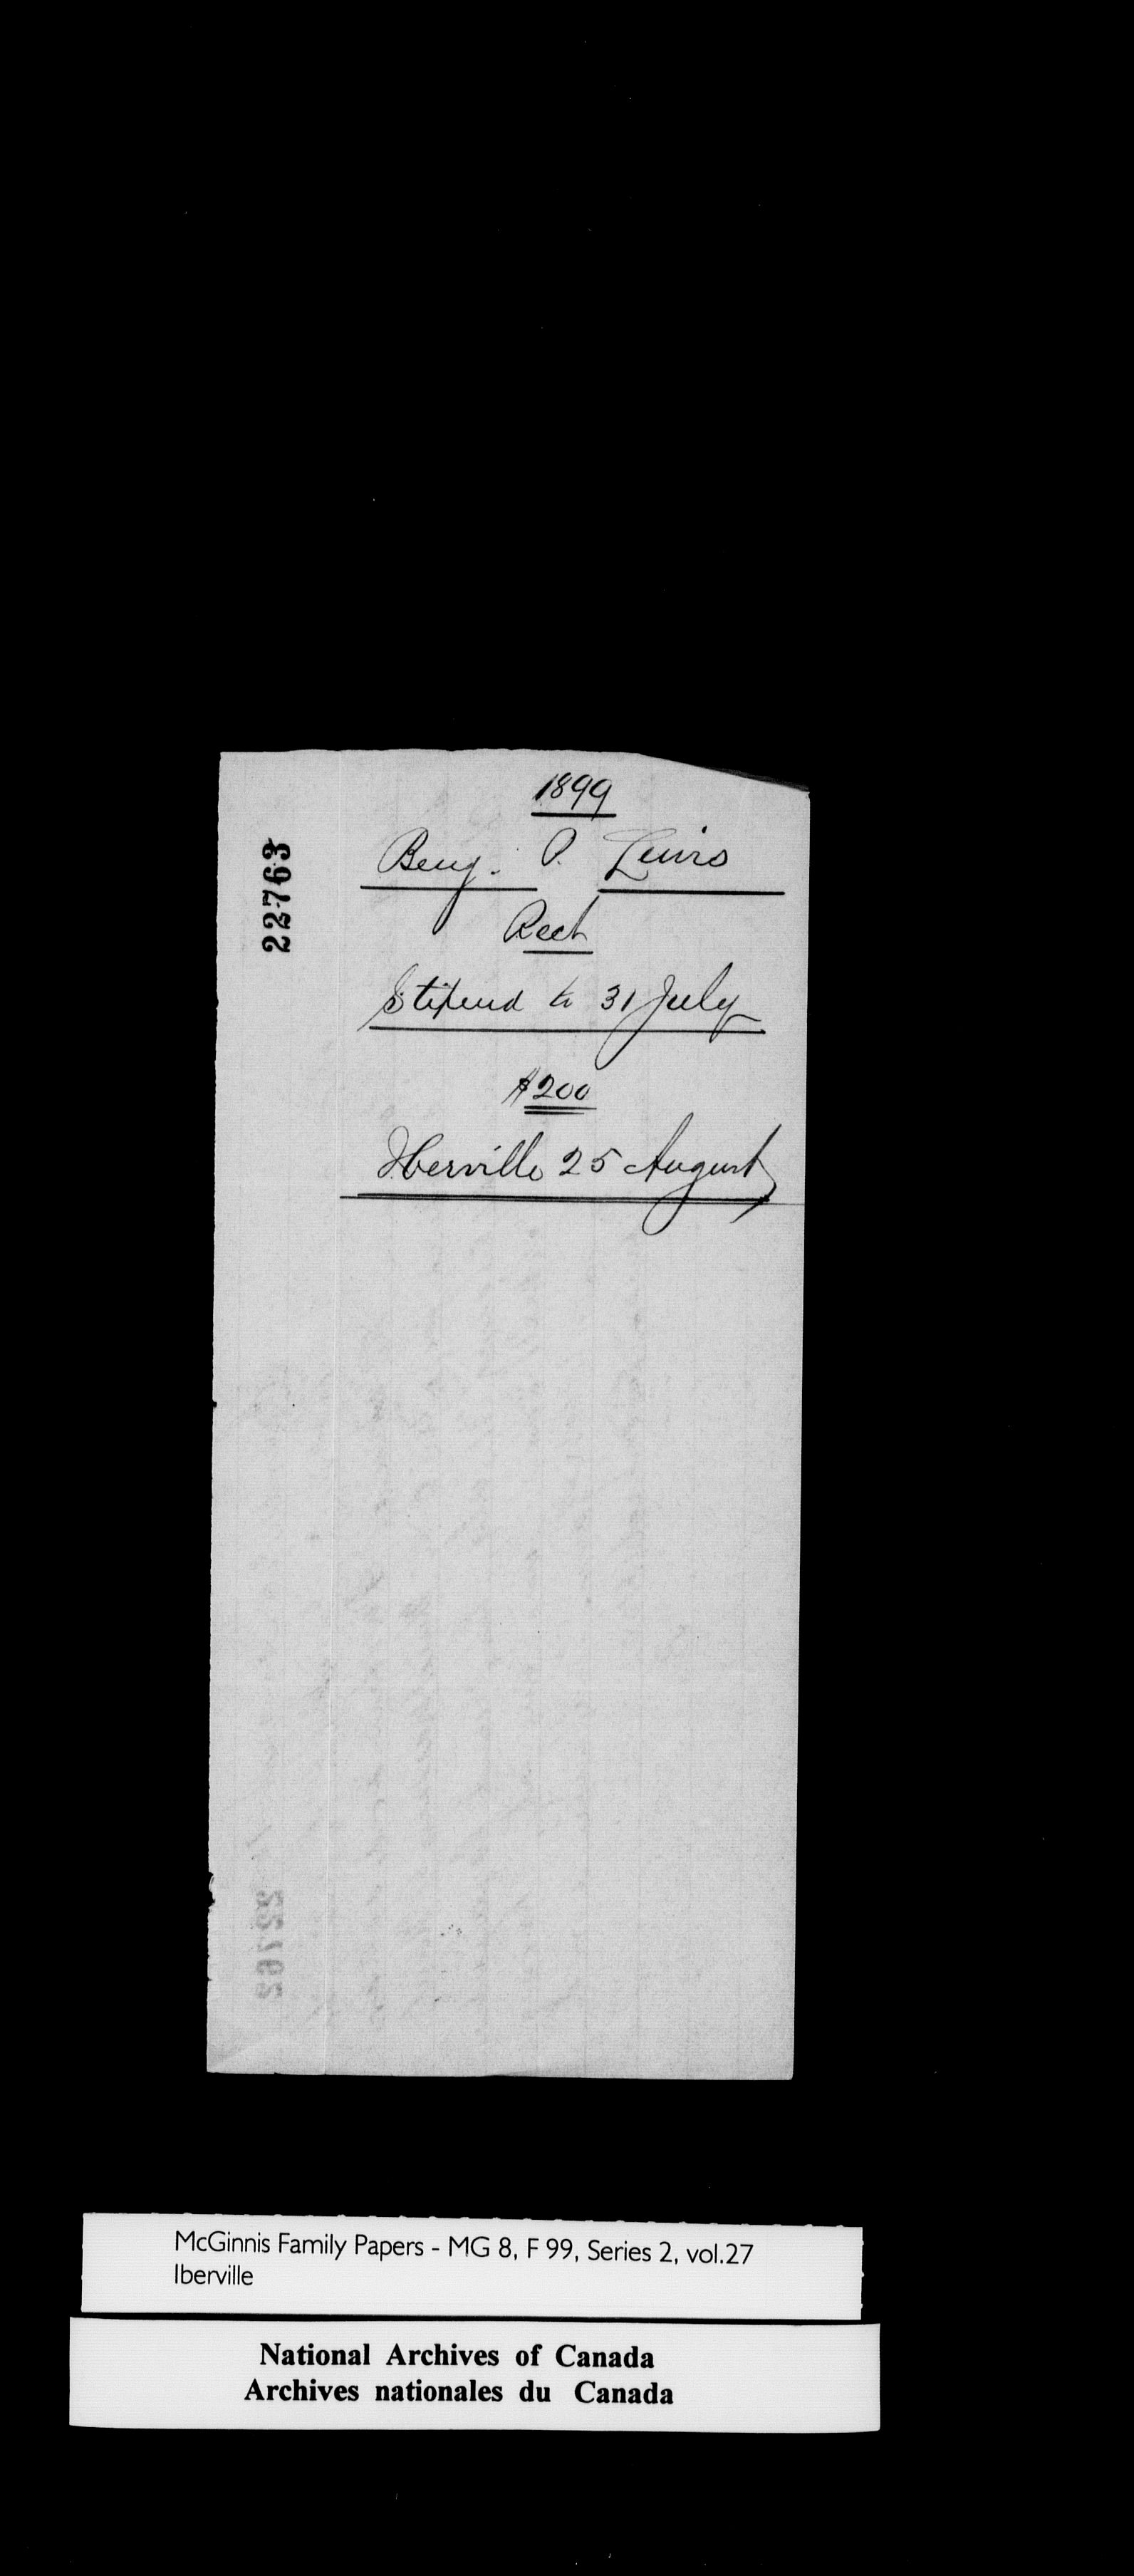 1899
22763
Benj. P. Lewis
Rect
Stipend to 31 July
$200
Iberville 25 August
McGinnis Family Papers - MG 8, F 99, Series 2, vol.27
Iberville
National Archives of Canada
Archives nationales du Canada